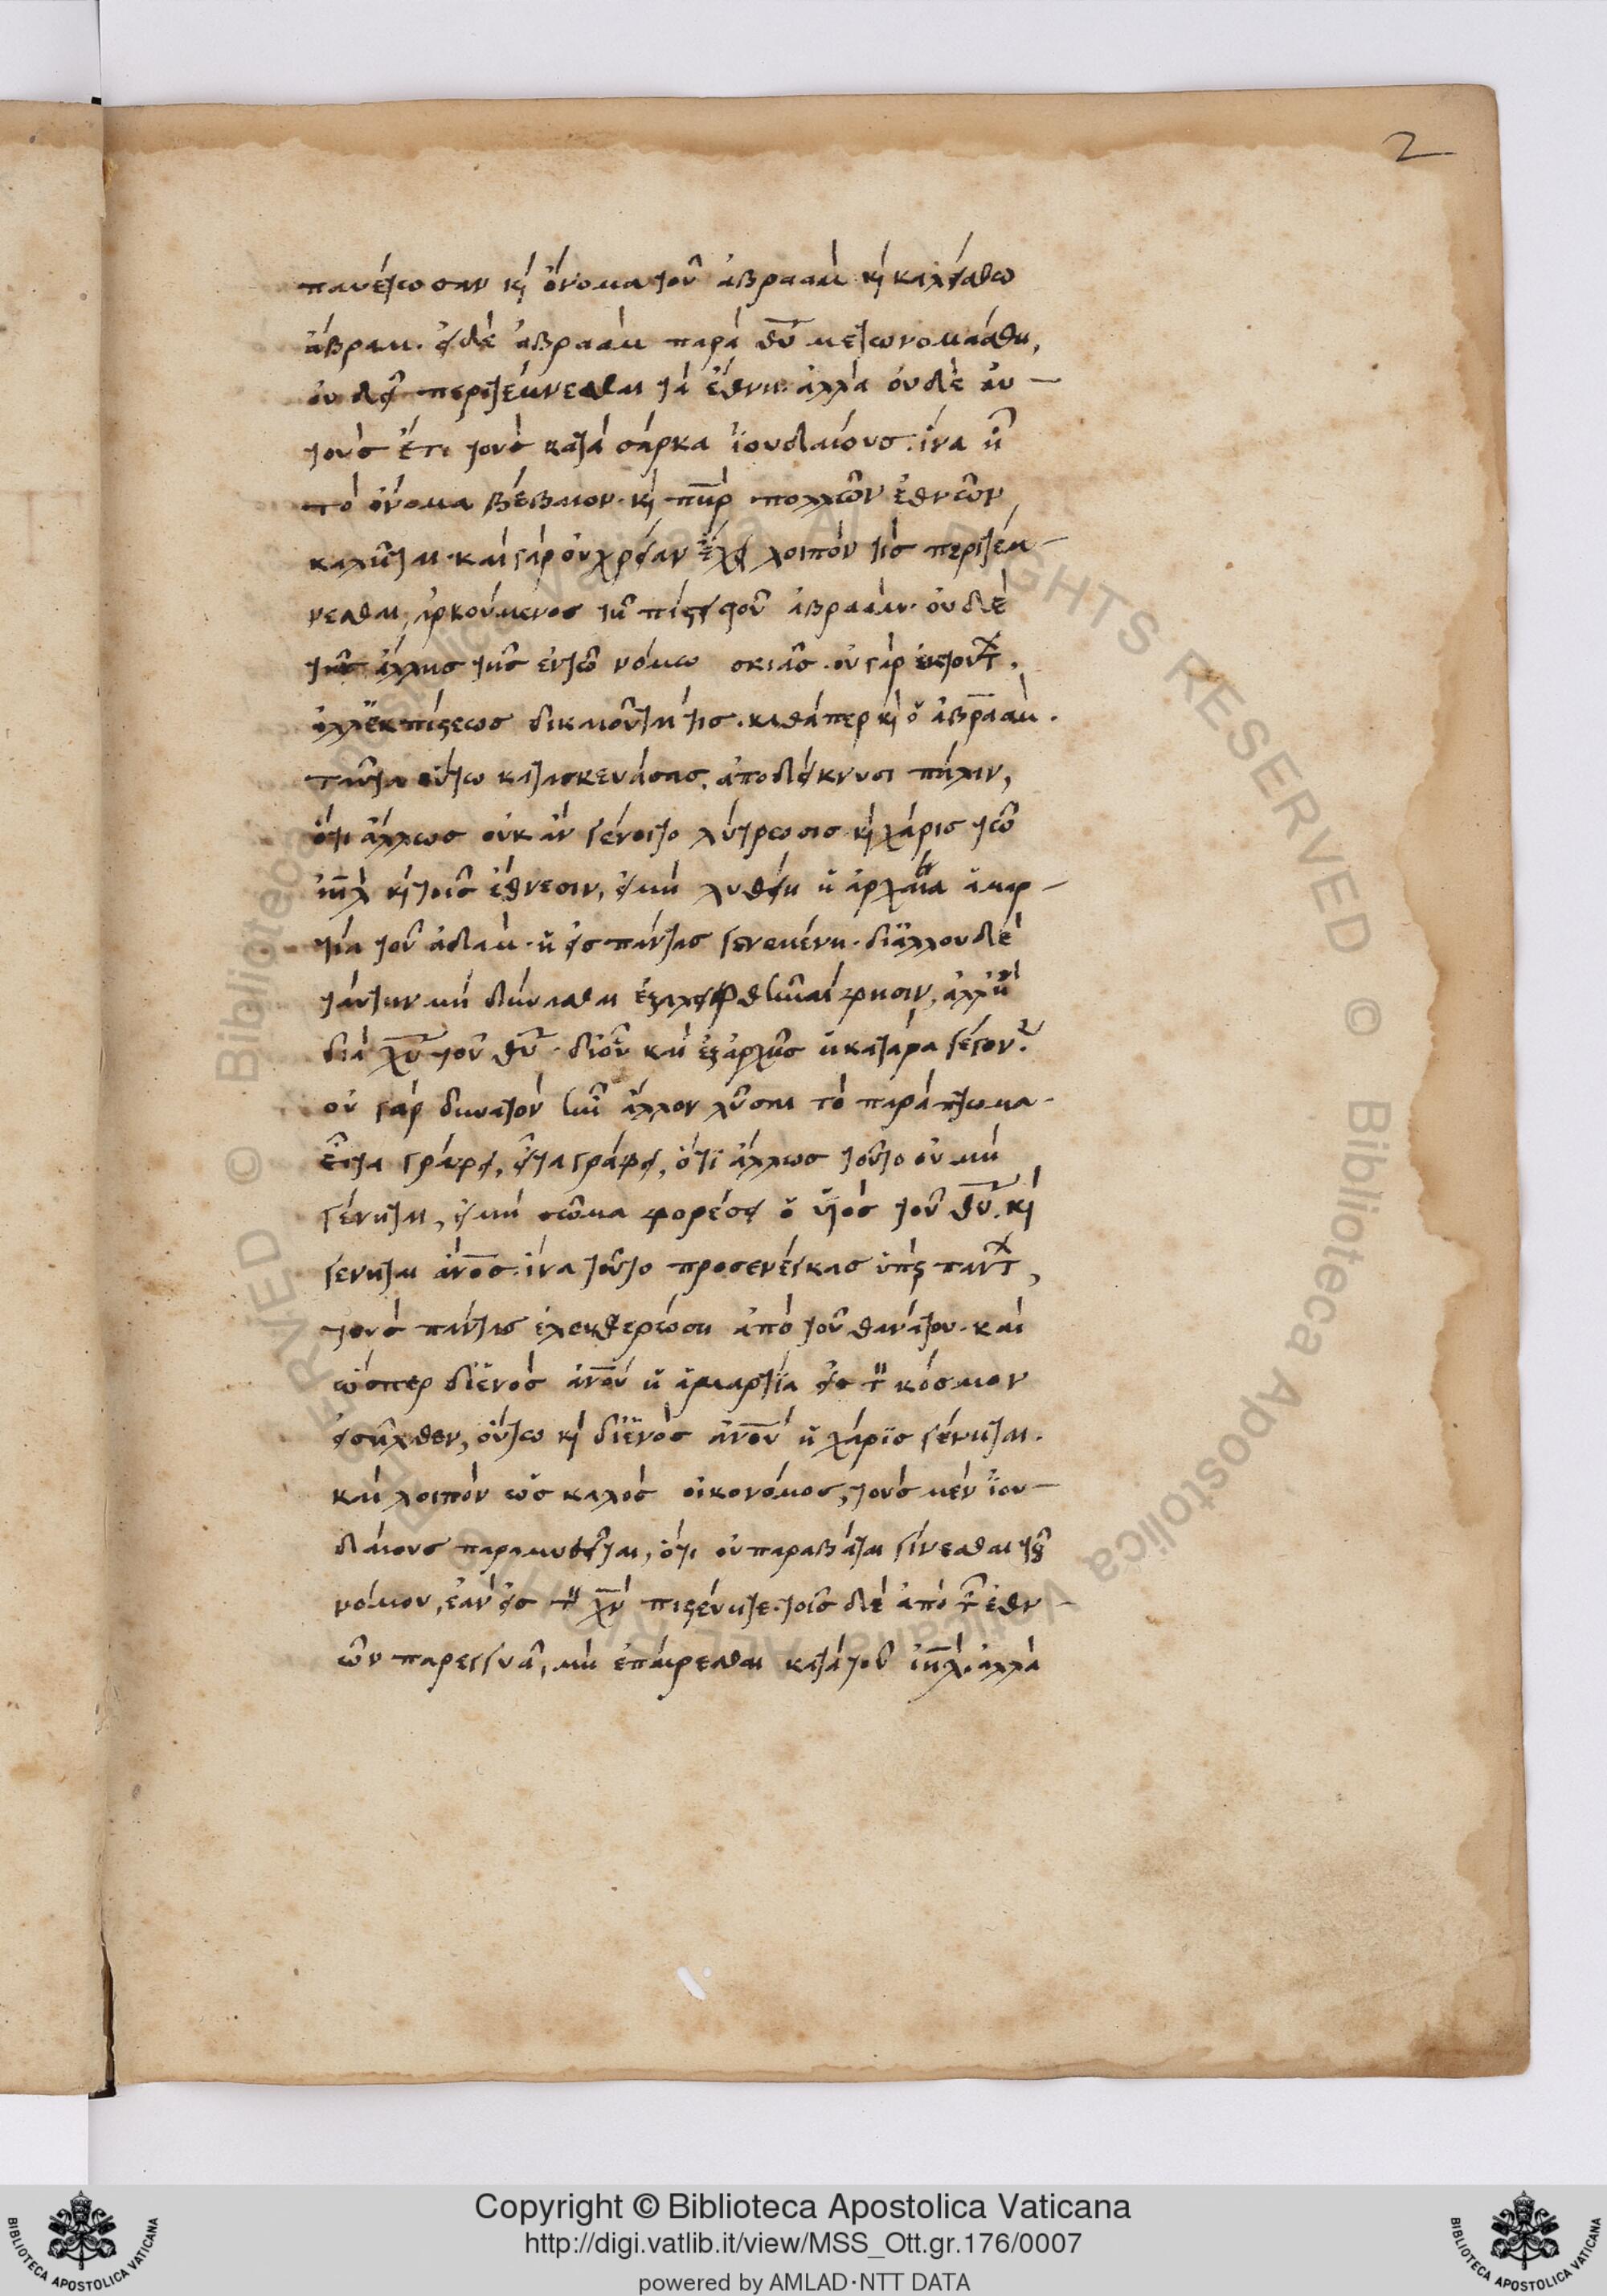 2
παυέτωσαν κὶ ὄνομα τοῦ ἀβραάμ κὶ καλείσθω
ἄβραμ. εἰ δὲ ἀβραὰμ παρὰ θῡ μετωνομάσθη,
οὐ δεῖ περιτέμνεσθαι τὰ ἔθνη. ἀλλὰ οὐδὲ αὐ-
τοὺς ἔτι τοὺς κατὰ σάρκα ἰουδαίους. ἵνα ᾖ
τὸ ὄνομα βέβαιον. κὶ πηρ πολλῶν ἐθνῶν
καλῆται. καὶ γὰρ οὐ χρείαν ἔχει λοιπόν τις περιτέμ-
νεσθαι, ἀρκούμενος τῇ πίστει τοῦ ἀβραάμ. οὐδὲ
τῆς ἄλλης τῆς ἐν τῷ νόμω σκιᾶς. οὐ γὰρ ἐκ τούτ,
ἀλλ' ἐκ πίστεως δικαιοῦται τις. καθάπερ κὶ ὁ ἀβραάμ.
ταῦτα οὕτω κατασκευάσας, ἀποδείκνυσι πάλιν,
ὅτι ἄλλως οὐκ ἂν γένοιτο λύτρωσις κὶ χάρις τῶ
ιηλ κὶ τοῖς ἔθνεσιν, εἰ μὴ λυθείη ἡ ἀρχαία ἁμαρ-
τία τοῦ ἀδάμ. ἡ εἰς πάντας γενομένη. δι' ἄλλου δὲ
ταύτην μὴ δύνασθαι ἐξαλειφθῆναι φησιν, ἀλλ' ἢ
διὰ χῡ τοῦ θῡ. δι' οὗ καὶ ἐξ ἀρχῆς ἡ κατάρα γέγον
οὐ γὰρ δυνατὸν ἦν ἄλλον λῦσαι τὸ παράπτωμα.
εἶτα γράφει, εἶτα γράφει, ὅτι ἄλλως τοῦτο οὐ μὴ
γένηται, εἰ μὴ σῶμα φορέσει ὁ υἱὸς τοῦ θῡ. κὶ
γένηται ἄνος. ἵνα τοῦτο προσενέγκας ὑπὲρ πάντ,
τοὺς πάντας ἐλευθερώση ἀπὸ τοῦ θανάτου. καὶ
ὥσπερ δι' ἑνὸς ἀνου ἡ ἁμαρτία εἰς τ κόσμον
εἰσῆλθεν, οὕτω κὶ δι' ἑνὸς ἀνου ἡ χάρις γένηται.
καὶ λοιπὸν ὡς καλὸς οἰκονόμος, τοὺς μὲν ἰου-
δαίους παραμυθεῖται, ὅτι οὐ παραβάται γίνεσθαι τοῦ
νόμου, ἐὰν εἰς τ χν πιστεύητε. τοῖς δὲ ἀπὸ τ ἐθν-
ῶν παρεγγυᾶ, μὴ ἐπαίρεσθαι κατὰ τοῦ ιηλ. ἀλλὰ
Copyright © Biblioteca Apostolica Vaticana
http://digi.vatlib.it/view/MSS_Ott.gr.176/0007
powered by AMLAD·NTT DATA